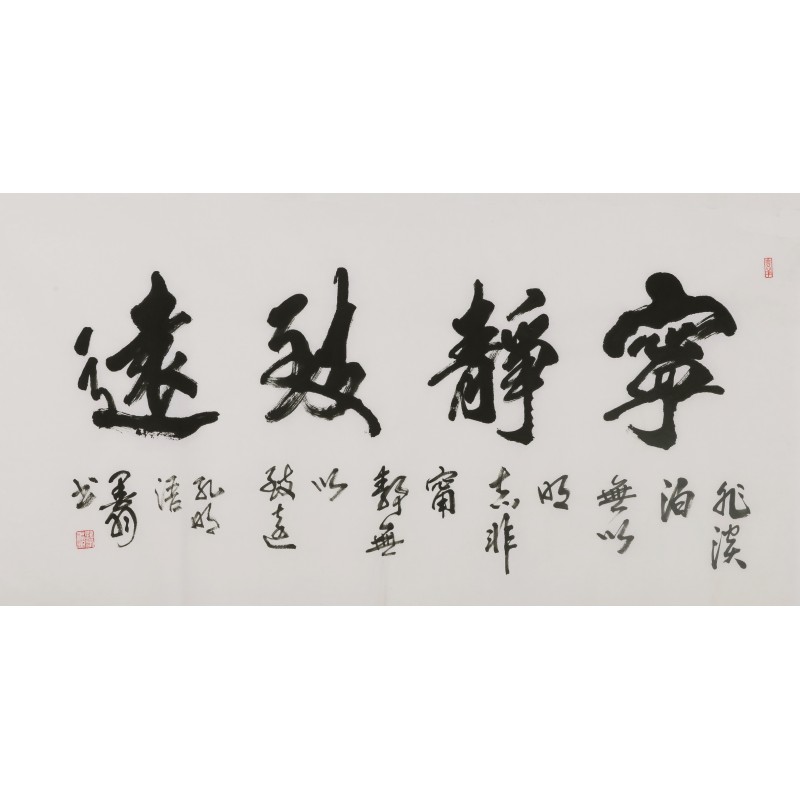 寧靜致遠
非淡
泊
無以
明
志非
甯
靜無
以
致遠
孔明
語
墨翁
书